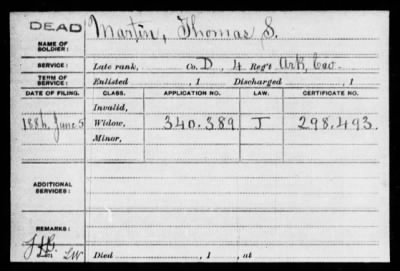 DEAD
NAME OF SOLDIER: Martin, Thomas S.
SERVICE: Late rank, Co. D, 4 Reg't Ark, Cav.
TERM OF SERVICE: Enlisted , 1 Discharged , 1
DATE OF FILING. CLASS. APPLICATION NO. LAW. CERTIFICATE NO.
Invalid,
1886, June 5 Widow, 340.389 J 298.493.
Minor,
ADDITIONAL SERVICES:
REMARKS:
Died , 1 , at